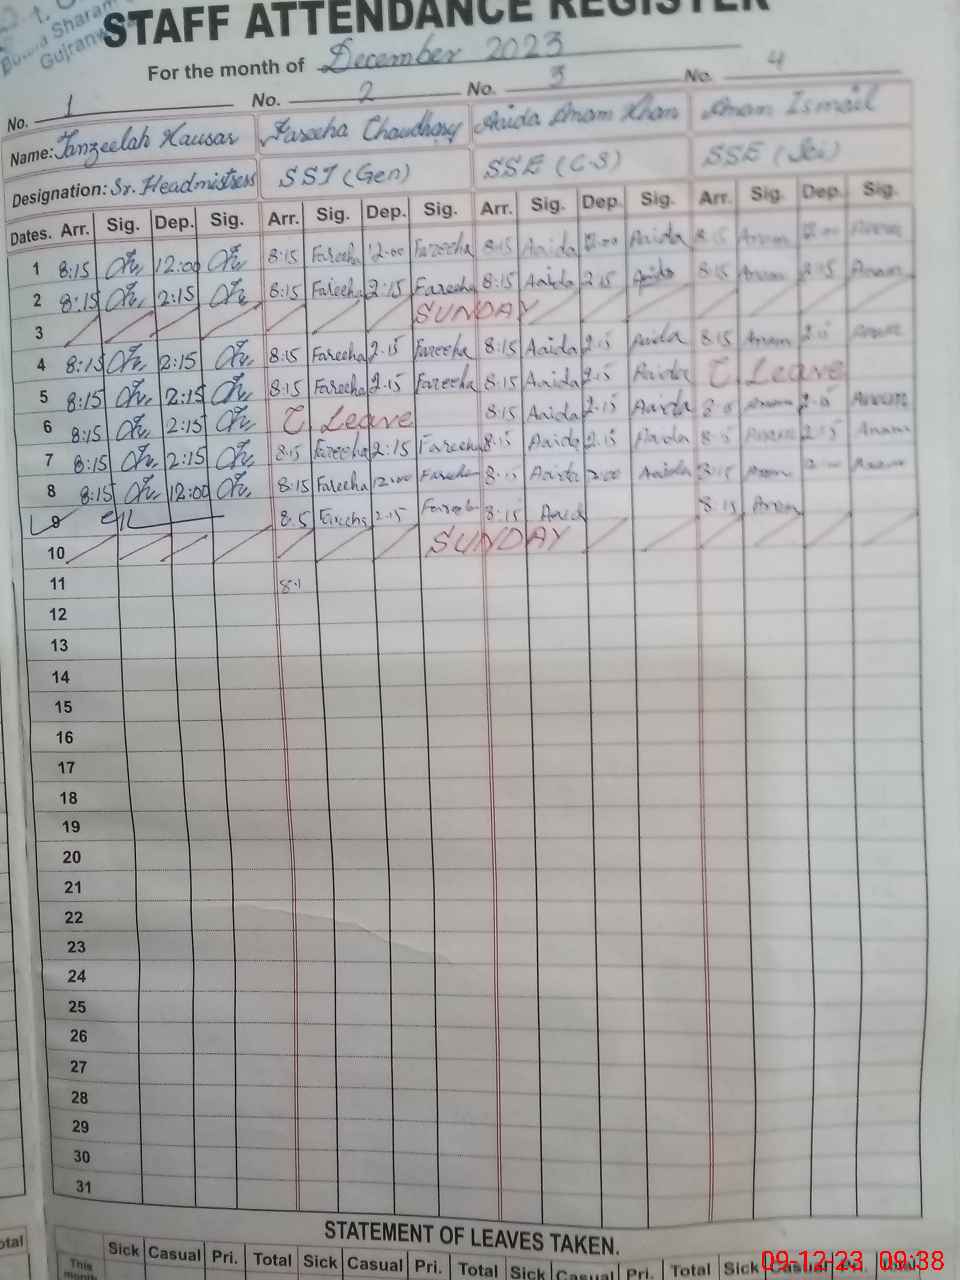 Gujranwala
STAFF ATTENDANCE REGISTER
For the month of December 2023
No. 1 No. 2 No. 3 No. 4
Name: Tanzeelah Kausar Fareeha Choudhary Aaida Anam Khan Anam Ismail
Designation: Sr. Headmistress SST (Gen) SSE (C.S) SSE (Sci)
Dates. Arr. Sig. Dep. Sig. Arr. Sig. Dep. Sig. Arr. Sig. Dep. Sig. Arr. Sig. Dep. Sig.
1 8:15 12:00 8:15 Fareeha 12:00 Fareeha 8:15 Aaida 12:00 Aaida 8:15 Anam 12:00 Anam
2 8:15 2:15 8:15 Fareeha 2:15 Fareeha 8:15 Aaida 2:15 Aaida 8:15 Anam 2:15 Anam
3 SUNDAY
4 8:15 2:15 8:15 Fareeha 2:15 Fareeha 8:15 Aaida 2:15 Aaida 8:15 Anam 2:15 Anam
5 8:15 2:15 8:15 Fareeha 2:15 Fareeha 8:15 Aaida 2:15 Aaida Leave
6 8:15 2:15 Leave 8:15 Aaida 2:15 Aaida Anam 2:15 Anam
7 8:15 2:15 8:15 Fareeha 2:15 Fareeha 8:15 Aaida 2:15 Aaida 8:15 Anam 2:15 Anam
8 8:15 12:00 8:15 Fareeha 12:00 Fareeha 8:15 Aaida 12:00 Aaida 8:15 Anam Anam
9 Fareeha 2:15 Fareeha 8:15 Aaid 8:15 Anam
10 SUNDAY
11 8:1
12
13
14
15
16
17
18
19
20
21
22
23
24
25
26
27
28
29
30
31
STATEMENT OF LEAVES TAKEN.
otal This month Sick Casual Pri. Total Sick Casual Pri. Total Sick Casual Pri. Total Sick Casual Pri. Total
09-12-23 09:38